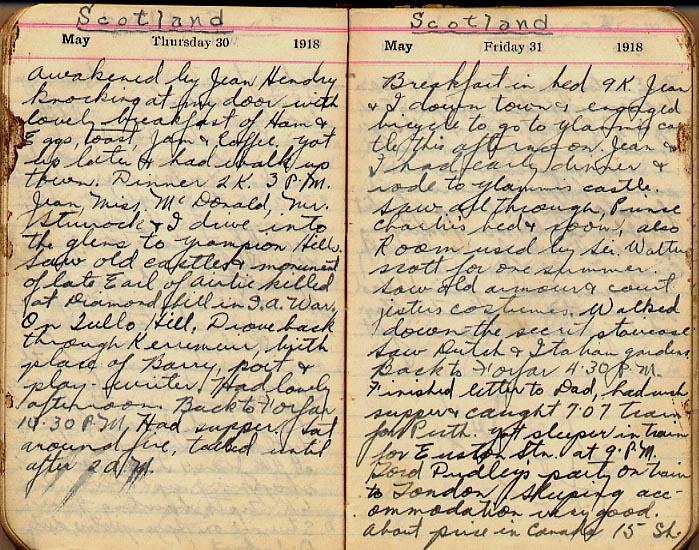 Scotland
May Thursday 30 1918
Awakened by Jean Hendry
knocking at my door with
lovely breakfast of Ham &
Eggs, toast, Jam & Coffee, got
up later & had walk up
town. Dinner 2 K. 3 P.M.
Jean, Miss, McDonald, Mr.
Sturrock & I drive into
the glens to Grampion Hills.
Saw old castles & monument
of late Earl of Airlie killed
at Diamond Hill in S.A. War.
On Tullo Hill, Drove back
through Kerriemuir, birth
place of Barry, poet &
play-writer. Had lovely
afternoon. Back to Forfar
10.30 P.M. Had supper. Sat
around fire, talked until
after 2 a.M.
Scotland
May Friday 31 1918
Breakfast in bed 9 K. Jean
& I down town & engaged
bicycle to go to Glammis cas
tle this afternoon. Jean &
I had early dinner &
rode to Glammis castle.
Saw all through, Prince
Charlie's bed & room, also
Room used by Sir. Walter
scott for one summer.
Saw old armour & court
jesters costumes. Walked
down the secret staircase
Saw Dutch & Italian gardens
Back to Forfar 4.30 P.M.
Finished letter to Dad, had
supper & caught 7.07 train
for Perth. Got sleeper in train
for Euston Stn. at 9 P.M.
Lord Dudleys party on train
to London, Sleeping acc-
ommodation very good.
About price in Canada 15 Sh.